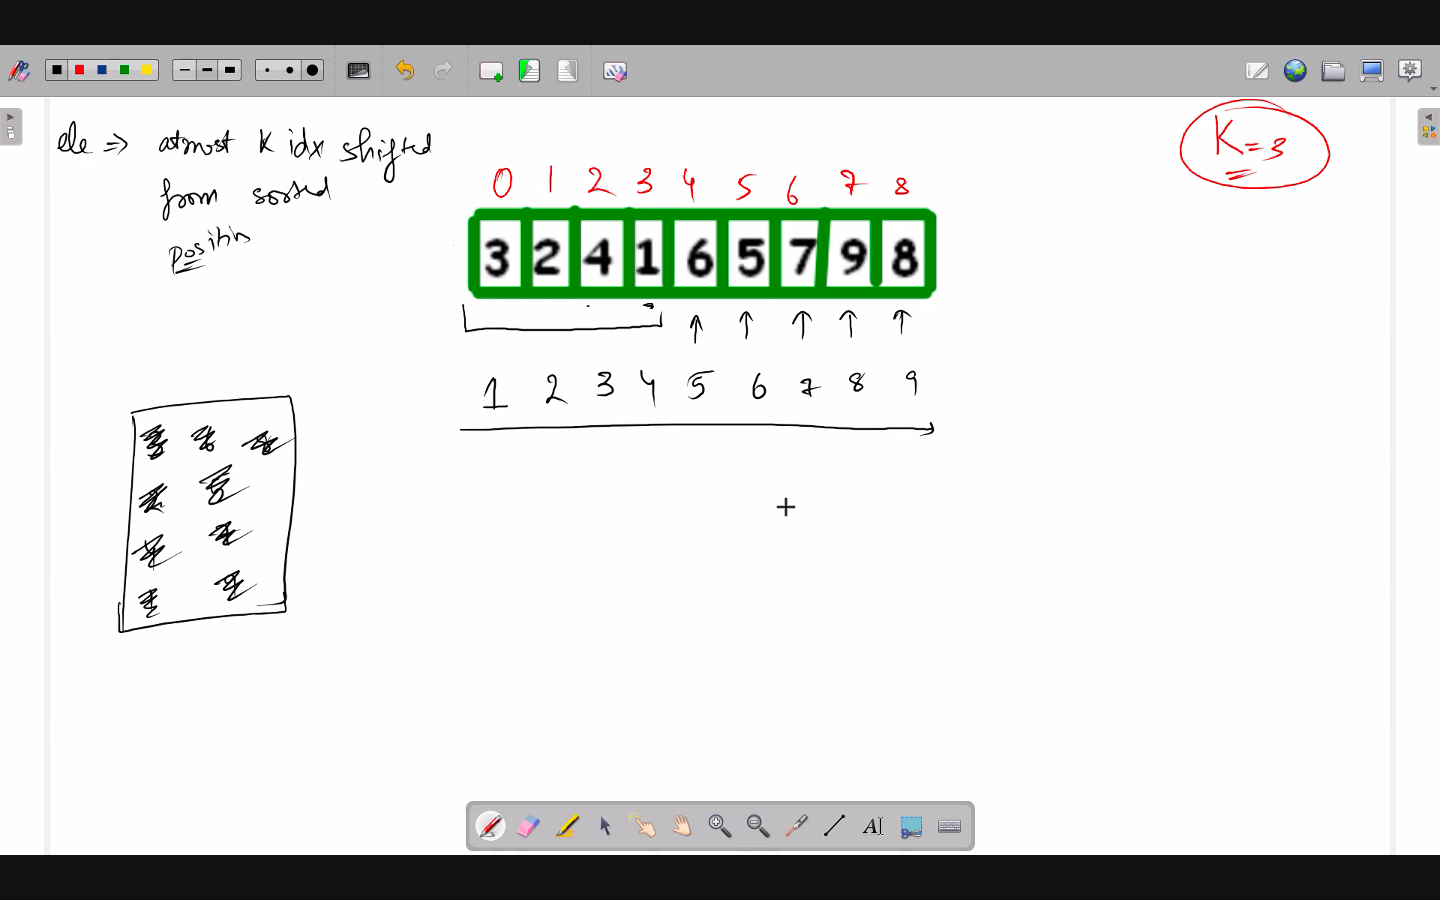 ele => atmost K idx shifted
from sorted
positin
K=3
0 1 2 3 4 5 6 7 8
3 2 4 1 6 5 7 9 8
1 2 3 4 5 6 7 8 9
A